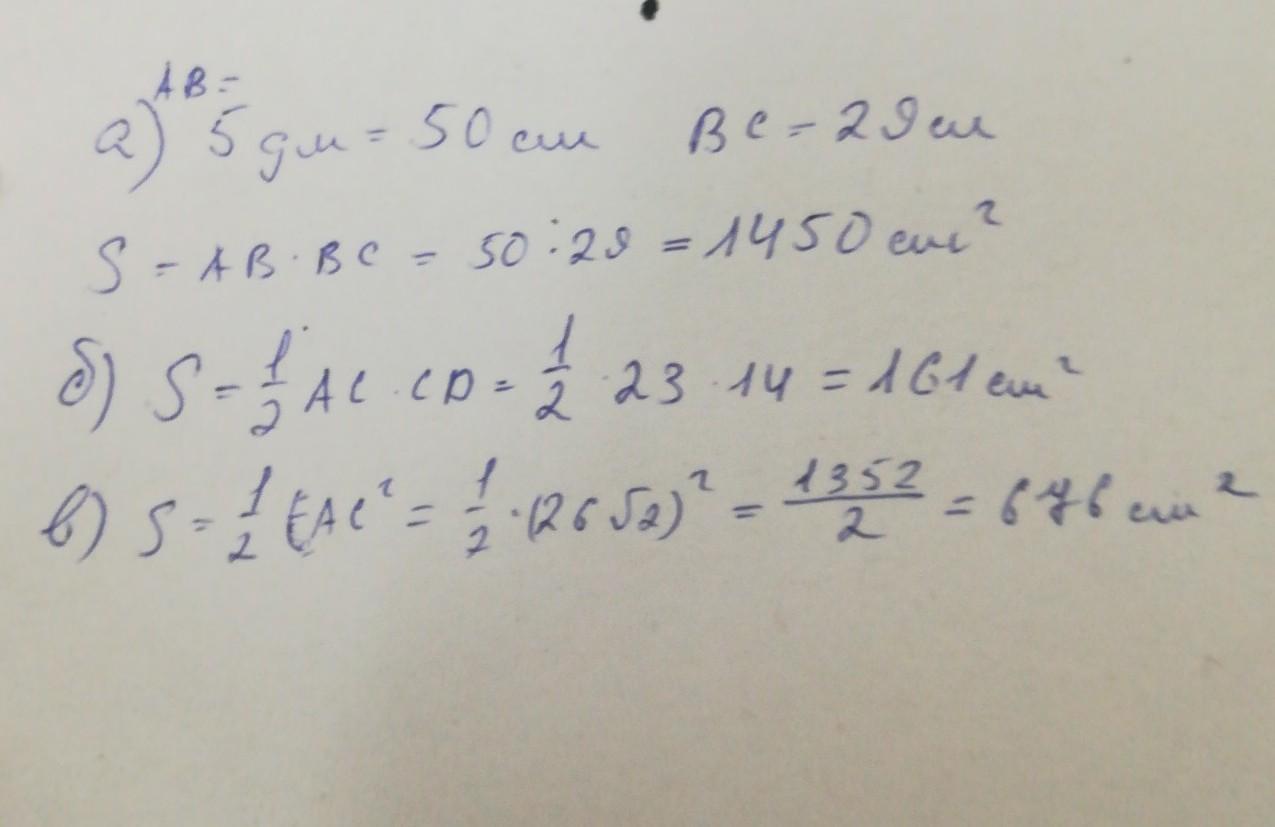 а) AB = 5 дм = 50 см BC = 29 см
S = AB · BC = 50 : 29 = 1450 см²
б) S = 1/2 AC · CD = 1/2 · 23 · 14 = 161 см²
в) S = 1/2 AC² = 1/2 · (26√2)² = 1352/2 = 676 см²